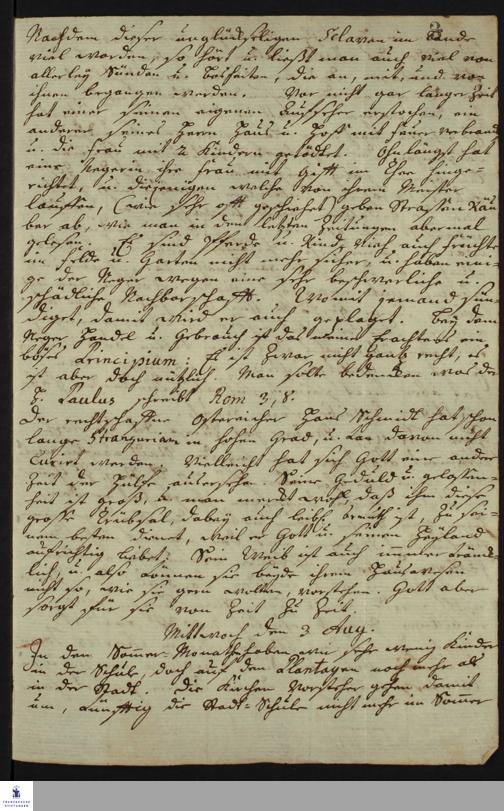 Nachdem dieser unglückseligen Sclaven im Lande
viel worden, so hört u. ließt man auch viel von
allerley Sünden u. Boßheiten, die an, mit, und von
ihnen begangen werden. Vor nicht gar langer Zeit
hat einer seinen eigenen Aufseher erstochen, ein
anderer seines Herrn Haus u. Hof mit Feuer verbrand
u. die Frau mit 2 Kindern getödtet. Ohnlängst hat
eine Negerin ihre Frau mit Gift im Thee hinge-
richtet, u. diejenigen welche von ihrem Meister
lauffen, (wie sehr oft geschiehet) geben Strassen Räu
ber ab, wie man in den letzten Zeitungen abermal
gelesen. Es sind Pferde u. Rind Vieh auch Früchte
im Felde u. Garten nicht mehr sicher, u. haben eini-
ge der Neger wegen eine sehr beschwerliche u.
schädliche Nachbarschafft. Womit jemand sün
diget, damit wird er auch geplaget. Bey dem
Neger Handel u. Gebrauch ist das meines Erachtens ein
böses Principium: Es ist zwar nicht ganz recht, es
ist aber doch nützlich. Man solte bedencken was der
H. Paulus schreibt Rom 3, 8.
Der rechtschaffne Hans Schmidt hat schon
lange Stranguriam in hohen Grad, u. kan davon nicht
Curirt werden. Vielleicht hat sich Gott eine andere
Zeit der Hülfe auserseh. Seine Geduld u. gelassen-
heit ist groß, u. man merckt wohl, daß ihm diese
grosse Trübsal, dabey auch leibl. armuth ist, zu sei-
nem besten dienet, weil er Gott u. seinen Heyland
aufrichtig liebet. Sein Weib ist auch immer kränk-
lich, u. also können sie beyde ihrem Hauswesen
nicht so, wie sie gern wolten, vorstehen. Gott aber
sorgt für sie von Zeit zu Zeit.
Mittwoch den 3 Aug.
In den Sommer-Monath haben wir sehr wenig Kinder
in der Schule, doch auf den Plantagen noch mehr als
in der Stadt. Die Kirchen Vorsteher gehen damit
um, künfftig die Stadt-Schule nicht mehr im Sommer
FRANCKESCHE
STIFTUNGEN